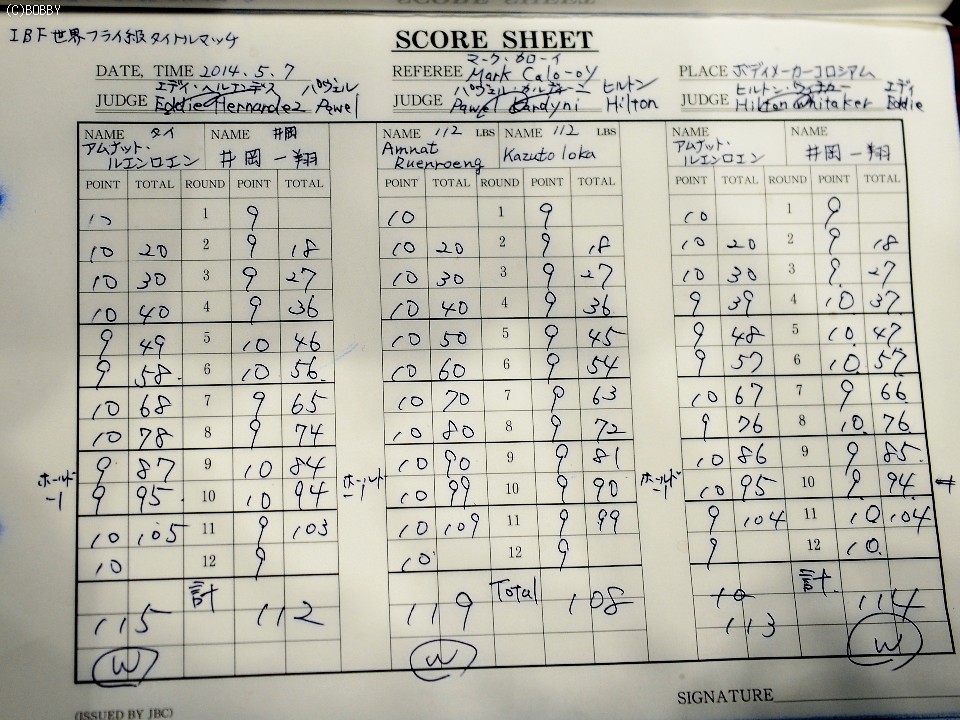 (C)BOBBY
IBF世界フライ級タイトルマッチ
SCORE SHEET
DATE, TIME 2014.5.7
REFEREE マーク・カローイ Mark Calo-oy
PLACE ボディメーカーコロシアム
JUDGE エディ・ヘルナンデス Eddie Hernandez パヴェル Pawel
JUDGE Pawel Kardyni ヒルトン Hilton
JUDGE ヒルトン・ウィテカー Hilton Whitaker エディ Eddie
NAME タイ NAME 井岡 NAME 112 LBS NAME 112 LBS NAME NAME
アムナット・ルエンロエン 井岡 一翔 Amnat Ruenroeng Kazuto Ioka アムナット・ルエンロエン 井岡 一翔
POINT TOTAL ROUND POINT TOTAL POINT TOTAL ROUND POINT TOTAL POINT TOTAL ROUND POINT TOTAL
10 1 9 10 1 9 10 1 9
10 20 2 9 18 10 20 2 9 18 10 20 2 9 18
10 30 3 9 27 10 30 3 9 27 10 30 3 9 27
10 40 4 9 36 10 40 4 9 36 9 39 4 10 37
9 49 5 10 46 10 50 5 9 45 9 48 5 10 47
9 58 6 10 56 10 60 6 9 54 9 57 6 10 57
10 68 7 9 65 10 70 7 9 63 10 67 7 9 66
10 78 8 9 74 10 80 8 9 72 9 76 8 10 76
9 87 9 10 84 10 90 9 9 81 10 86 9 9 85
ホールド -1 9 95 10 10 94 ホールド -1 10 99 10 9 90 ホールド -1 10 95 10 9 94
10 105 11 9 103 10 109 11 9 99 9 104 11 10 104
10 12 9 10 12 9 9 12 10
計 Total 計
115 112 119 108 10 113 114
W W W
(ISSUED BY JBC)
SIGNATURE